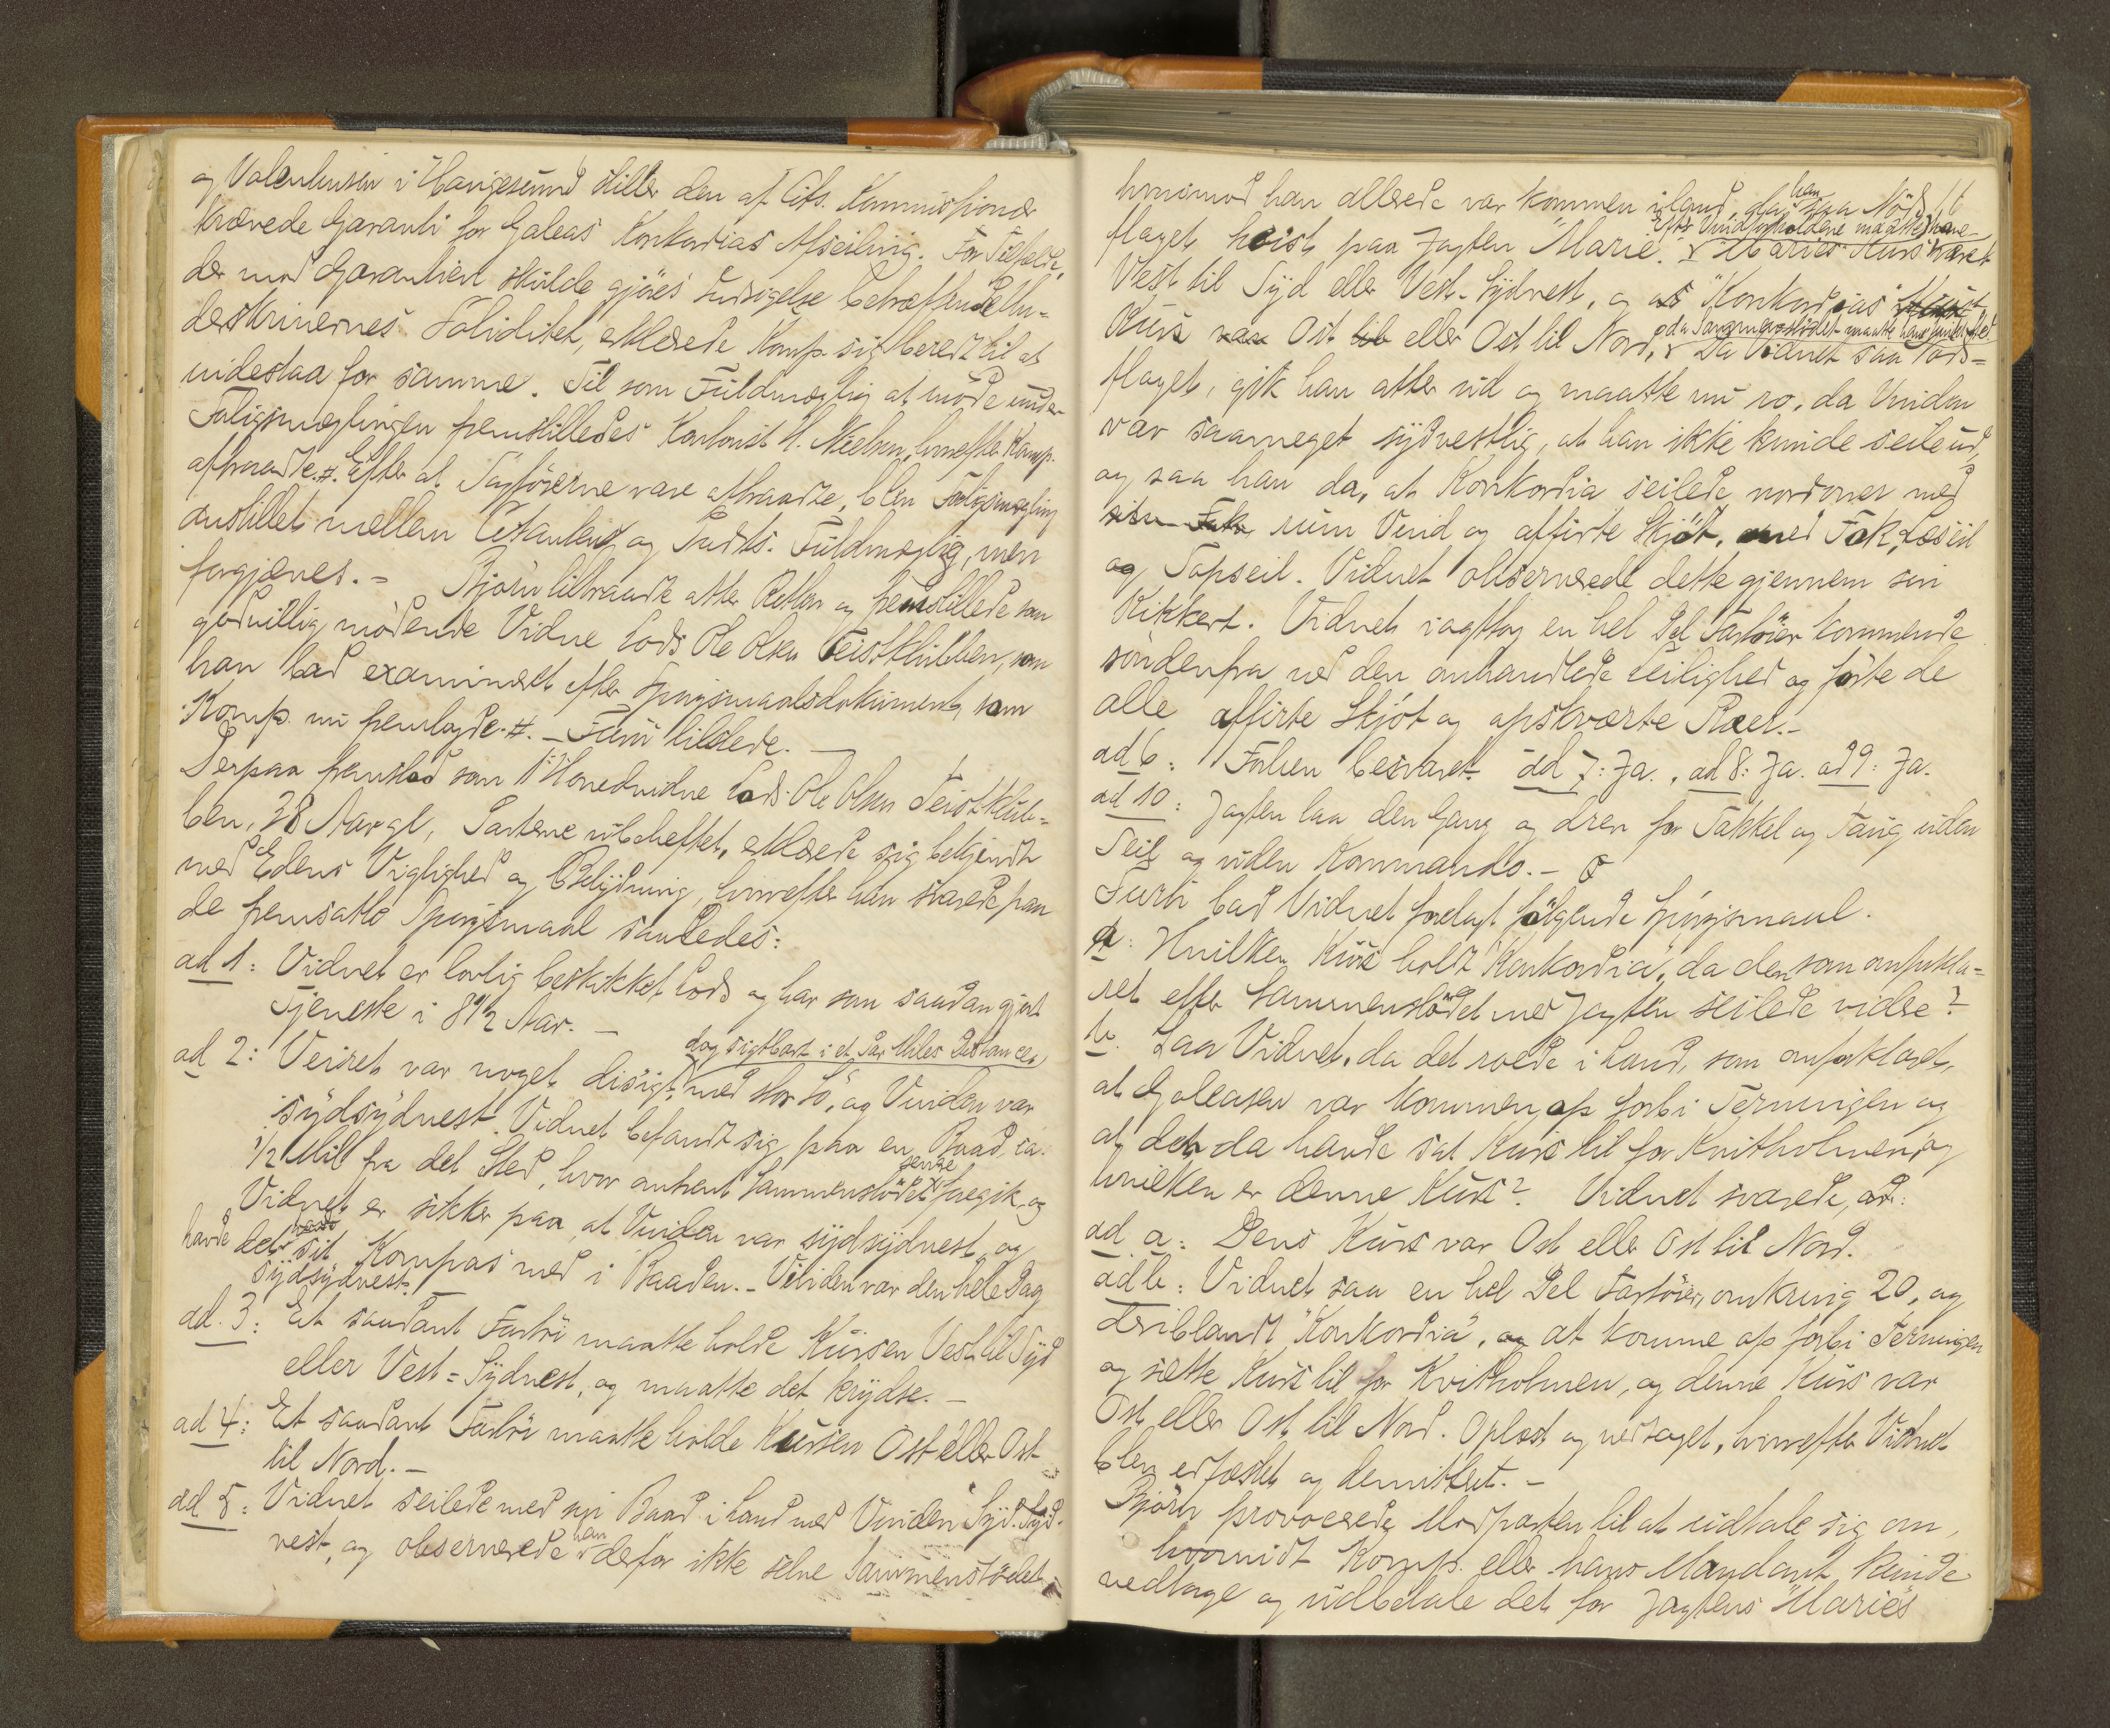 og Valentinsen i Haugesund stiller den af Cits. Kommissionær
krævede Garanti for Galeas Konkordias Afseiling. For Tilfælde,
der mod Garantien skulde gjöres Indsigelse betræffende Un-
derskrivernes Soliditet, erklærede Komp. sig beredt til at
indestaa for samme. Til som Fuldmægtig at möde under
Forligsmæglingen fremstilledes Kontorist H. Nielsen, hvorefter Komp.
aftraadte. #. Efter at Sagförerne vare aftraadte, blev Forligsmægling
anstillet mellem Citanten og Indsts. Fuldmægtig, men
forgjæves. – Björn tiltraadte atter Retten og fremstillede som
godvillig mödende Vidne Lods Ole Olsen Teistklubben, som
han bad examineret efter Spörgsmaalsdokument, som
Komp. nu fremlagde. #. – tilstede. –
Derpaa fremstod som 1ste Hovedvidne Lods Ole Olsen Teistklub-
ben, 38 Aar gl., Parterne ubeheftet, erklærede sig bekjendt
med Edens Vigtighed og Betydning, hvorefter han svarede paa
de fremsatte Spörgsmaal saaledes:
ad 1: Vidnet er lovlig beskikket Lods og har som saadan gjort
Tjeneste i 8 1/2 Aar. –
dog sigtbart i et Par Miles Distance,
ad 2: Veiret var noget disigt, med stor Sö, og Vinden var
sydsydvest. Vidnet befandt sig paa en Baad ca.
1/2 Mil fra det Sted, hvor omhandl. Sammenstödet senere foregik, og
Vidnet er sikker paa, at Vinden var sydsydvest, og
havde det havde sit Kompas med i Baaden. – Vinden var den hele Dag
sydsydvest.
ad. 3: Et saadant Fartöi maatte holde Kursen Vest til Syd
eller Vest-Sydvest, og maatte det krydse. –
ad 4: Et saadant Fartöi maatte holde Kursen Ost eller Ost
til Nord. –
ad 5: Vidnet seilede med sin Baad i Land med Vinden Syd-Syd-
vest, og observerede han derfor ikke selve Sammenstödet,
hvorimod han allerede var kommen i land, da han saa Nöds 16
Efter Vindforholdene maatte have
flaget heist paa Jagten "Marie". "Maries" Kurs været
Vest til Syd eller Vest-Sydvest, og at "Konkordias"
o da Sammenstödet maatte have fundet Sted.
Kurs var Ost til eller Ost til Nord, Da Vidnet saa Nöds-
flaget, gik han atter ud og maatte nu ro, da Vinden
var saameget sydvestlig, at han ikke kunde seile ud,
og saa han da, at Konkordia seilede nordover med
sin Fok rum Vind og affirte Skjöt, med Fok, Læseil
og Topseil. Vidnet observerede dette gjennem sin
Kikkert. Vidnet iagttog en hel Del Fartöier kommende
söndenfra ved den omhandlede Leilighed og förte de
alle affirte Skjöt og opskværte Raaer. –
ad 6: Forhen besvaret. ad 7: Ja., ad 8: Ja. ad 9: Ja.
ad 10: Jagten laa den Gang og drev for Takkel og Taug uden
Seil og uden Kommando. –
bad Vidnet forelagt fölgende Spörgsmaal.
a: Hvilken Kurs holdt "Konkordia", da den som omforkla-
ret efter Sammenstödet med Jagten seilede videre?
b. Saa Vidnet, da det roede i Land, som omforklaret,
at Galeasen var kommen op forbi Terningen og
at det da havde sat Kurs til for Kvitholmen, og
hvilken er denne Kurs? Vidnet svarede, ad:
ad a: Dens Kurs var Ost eller Ost til Nord.
ad b: Vidnet saa en hel Del Fartöier, omkring 20, og
deriblandt "Konkordia", og at komme op forbi Terningen
og sætte Kurs til for Kvitholmen, og denne Kurs var
Ost eller Ost til Nord. Oplæst og vedtaget, hvorefter Vidnet
blev edfæstet og demitteret. –
Björn provocerede Modparten til at udtale sig om,
hvorvidt Komp. eller hans Mandant kunde
vedtage og udbetale det for Jagtens "Maries